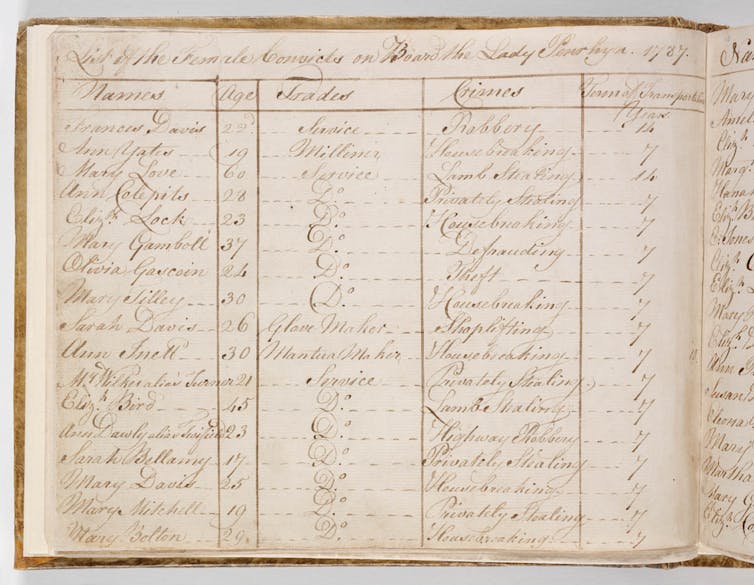 List of the Female Convicts on Board the Lady Penrhyn. 1787.
Names Age Trades Crimes Term of Transportation
Years
Frances Davis 22 Service Robbery 14
Ann Yates 19 Milliner Housebreaking 7
Mary Love 60 Service Lamb Stealing 14
Ann Colepits 28 Do. Privately Stealing 7
Elizh. Lock 23 Do. Housebreaking 7
Mary Gamboll 37 Do. Defrauding 7
Olivia Gascoin 24 Do. Theft 7
Mary Tilley 30 Do. Housebreaking 7
Sarah Davis 26 Glove Maker Shoplifting 7
Ann Inett 30 Mantua Maker Housebreaking 7
alias Turner 21 Service Privately Stealing 7
Elizh. Bird 45 Do. Lamb Stealing 7
Ann Dawly alias 23 Do. Highway Robbery 7
Sarah Bellamy 17 Do. Privately Stealing 7
Mary Davis 25 Do. Housebreaking 7
Mary Mitchell 19 Do. Privately Stealing 7
Mary Bolton 29 Do. Housebreaking 7
Na
Mary
Elizh.
Mary
Ann
Susan
Mary
Martha